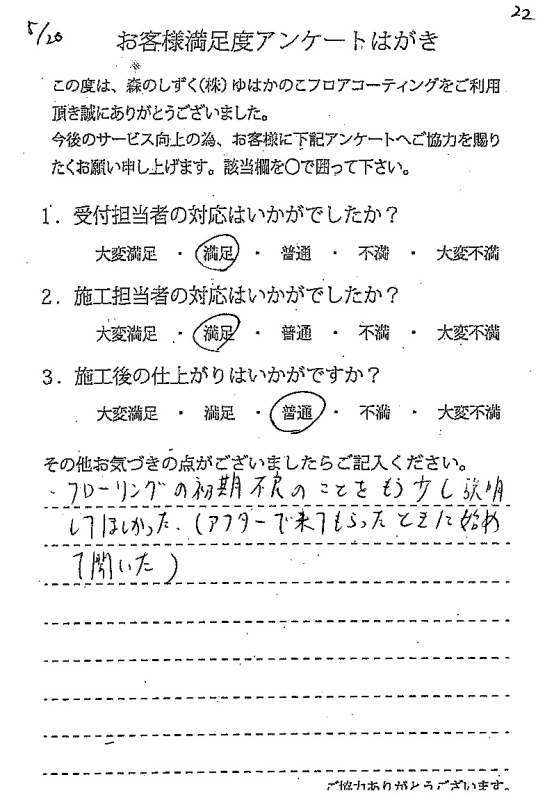 5/20
22
お客様満足度アンケートはがき
この度は、森のしずく(株)ゆはかのこフロアコーティングをご利用
頂き誠にありがとうございました。
今後のサービス向上の為、お客様に下記アンケートへご協力を賜り
たくお願い申し上げます。該当欄を〇で囲って下さい。
1．受付担当者の対応はいかがでしたか？
大変満足 ・ 満足 ・ 普通 ・ 不満 ・ 大変不満
2．施工担当者の対応はいかがでしたか？
大変満足 ・ 満足 ・ 普通 ・ 不満 ・ 大変不満
3．施工後の仕上がりはいかがですか？
大変満足 ・ 満足 ・ 普通 ・ 不満 ・ 大変不満
その他お気づきの点がございましたらご記入ください。
・フローリングの初期不良のことをもう少し説明
してほしかった．(アフターで来てもらったときに始め
て聞いた)
ご協力ありがとうございます。